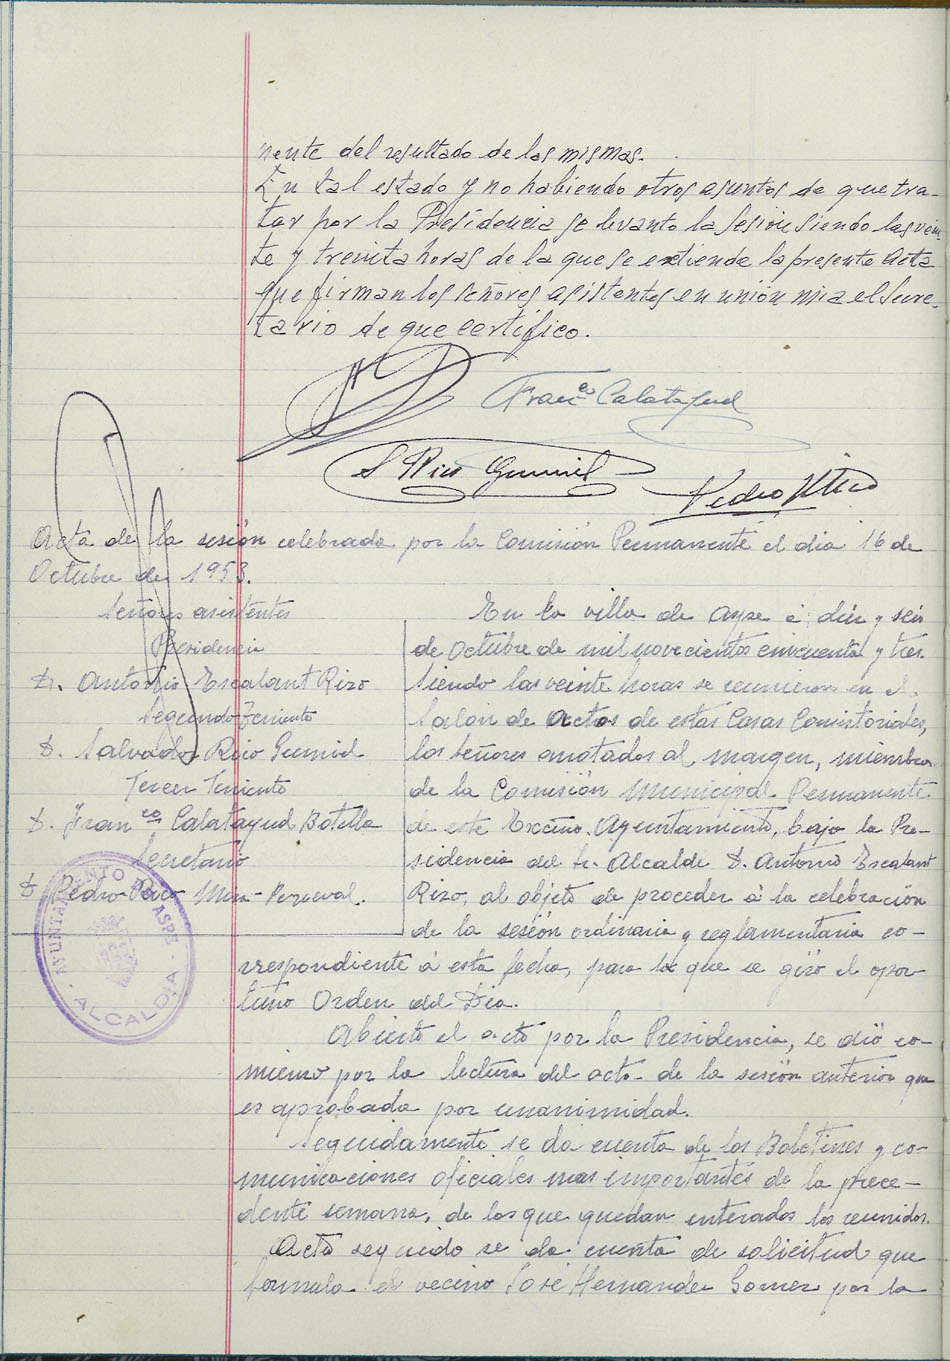 nente del resultado de las mismas.
En tal estado y no habiendo otros asuntos de que tra-
tar por la Presidencia se levanto la sesión siendo las vein-
te y treinta horas de la que se extiende la presente Acta
que firman los señores asistentes en unión mia el Secre-
tario de que certifico.
Franco Calatayud
S Rico Gumiel
Pedro
Acta de la sesión celebrada por la Comisión Permanente el dia 16 de
Octubre de 1953.
Señores asistentes
Presidencia
D. Antonio Escalant Rizo
Segundo Teniente
D. Salvador Rico Gumiel
Tercer Teniente
D. Franco Calatayud Botella
Secretario
D Pedro
AYUNTAMIENTO DE ASPE
- ALCALDIA -
En la villa de Aspe á diez y seis
de Octubre de mil novecientos cincuenta y tres
siendo las veinte horas se reunieron en el
Salón de actos de estas Casas Consistoriales,
los señores anotados al margen, miembros
de la Comisión Municipal Permanente
de este Excmo. Ayuntamiento, bajo la Pre-
sidencia del Sr. Alcalde D. Antonio Escalant
Rizo, al objeto de proceder á la celebración
de la sesión ordinaria y reglamentaria co-
rrespondiente á esta fecha, para la que se giró el opor-
tuno Orden del Dia.
Abierto el acto por la Presidencia, se dió co-
mienzo por la lectura del acta de la sesión anterior que
es aprobada por unanimidad.
Seguidamente se da cuenta de los Boletines y co-
municaciones oficiales mas importantes de la prece-
dente semana, de los que quedan enterados los reunidos.
Acto seguido se da cuenta de solicitud que
formula el vecino José Hernandez Gomez por la